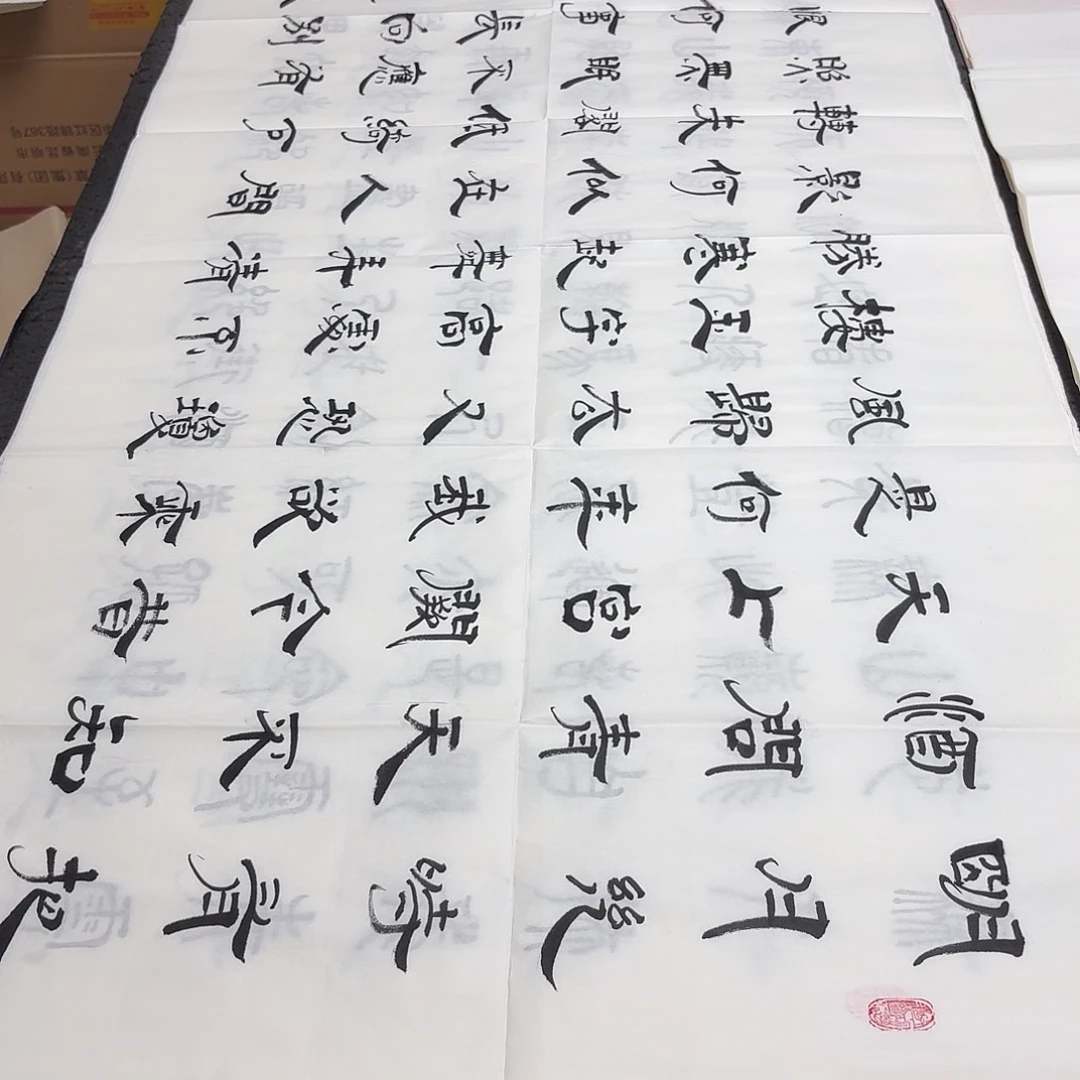 明月幾時有把
酒問青天不知
天上宮闕今昔
是何年我欲乘
風歸去又恐瓊
樓玉宇高處不
勝寒起舞弄清
影何似在人間
轉朱閣低綺戶
照無眠不應有
恨何事長向別